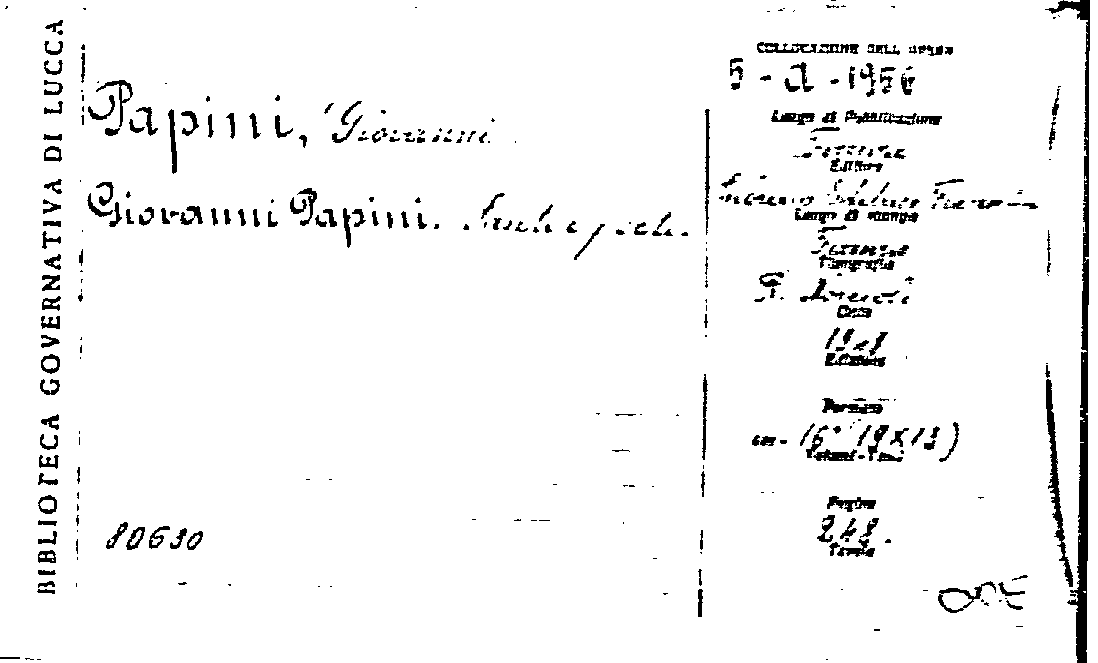 BIBLIOTECA GOVERNATIVA DI LUCCA
Papini, Giovanni
Giovanni Papini. Santi e poeti.
80630
COLLOCAZIONE DELL'OPERA
5 - a - 1956
Luogo di Pubblicazione
Firenze
Editore
Editrice
Luogo di stampa
Firenze
Tipografia
Data
Edizione
Formato
cm. 16° 19X13)
Volumi - Tomi
Pagine
248.
Tavole